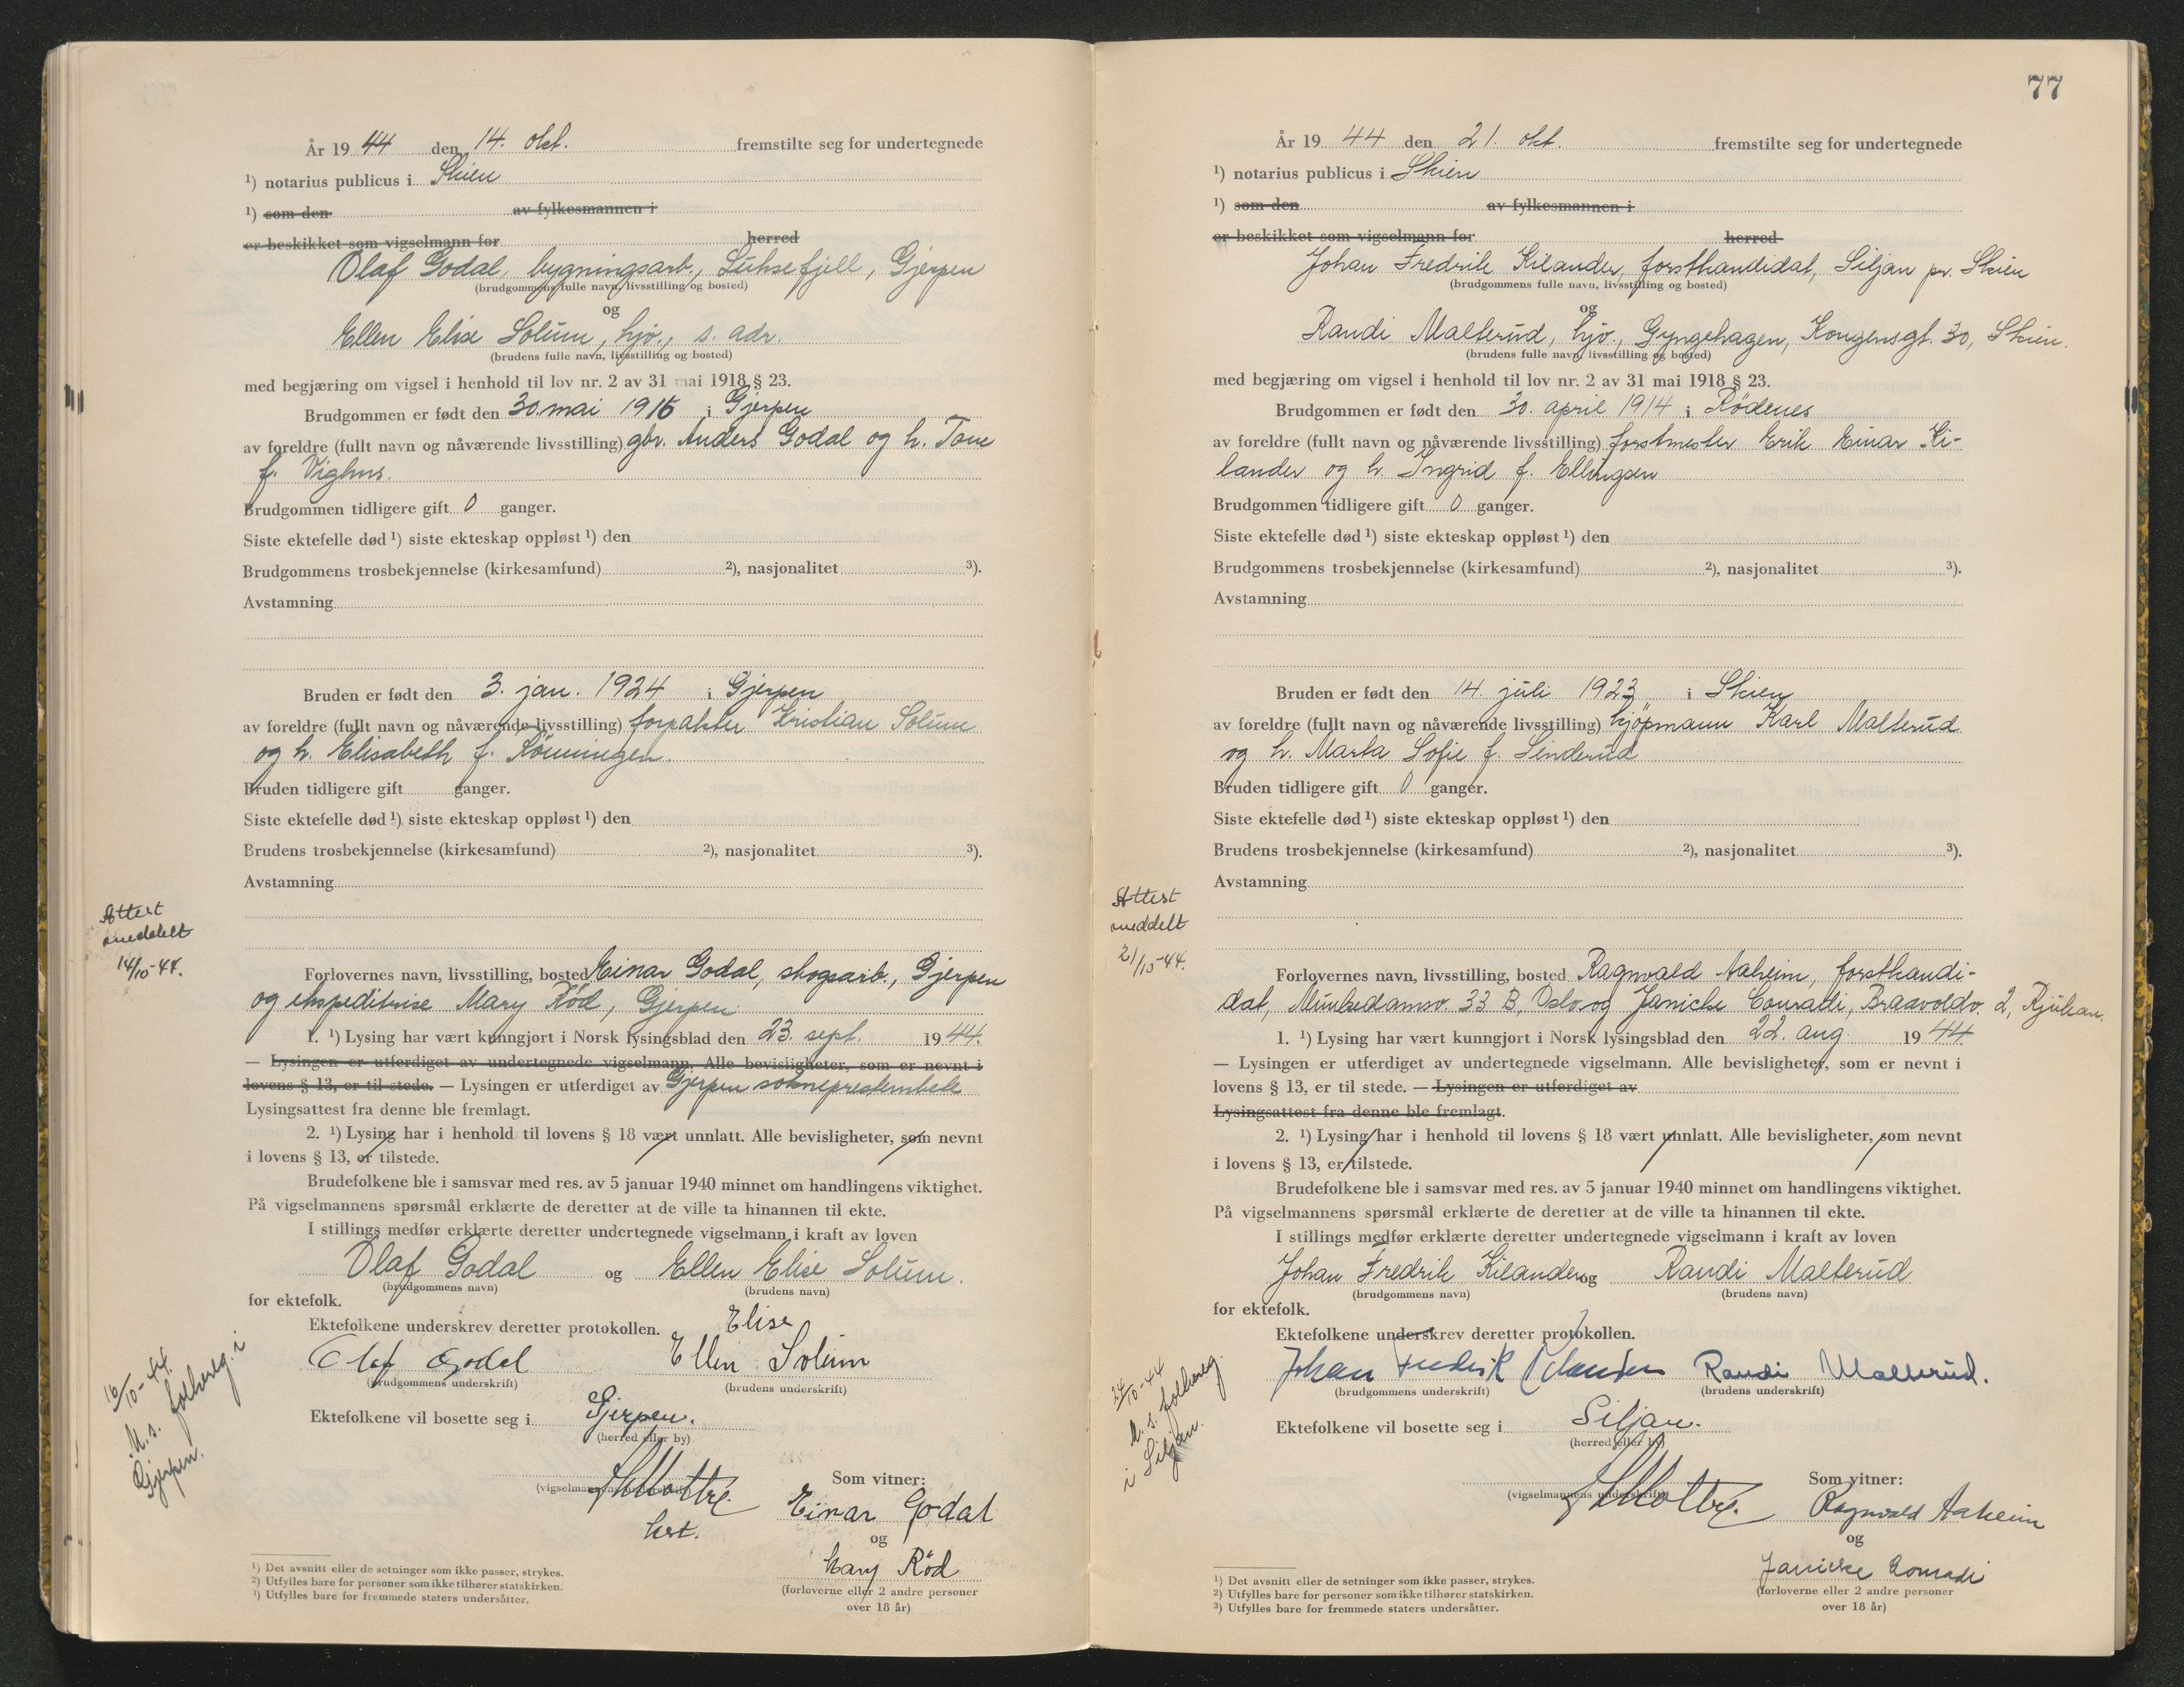 År 19 44 den 14. okt. fremstilte seg for undertegnede
¹) notarius publicus i Skien
¹) som den av fylkesmannen i
er beskikket som vigselmann for herred
Olaf Godal, bygningsarb., Luksefjell, Gjerpen
(brudgommens fulle navn, livsstilling og bosted)
og
Ellen Elise Solum, hjv., s. adr.
(brudens fulle navn, livsstilling og bosted)
med begjæring om vigsel i henhold til lov nr. 2 av 31 mai 1918 § 23.
Brudgommen er født den 30. mai 1916 i Gjerpen
av foreldre (fullt navn og nåværende livsstilling) gbr. Anders Godal og h. Tone
f. Vighus.
Brudgommen tidligere gift 0 ganger.
Siste ektefelle død ¹) siste ekteskap oppløst ¹) den
Brudgommens trosbekjennelse (kirkesamfund) ²), nasjonalitet ³).
Avstamning
Bruden er født den 3. jan. 1924 i Gjerpen
av foreldre (fullt navn og nåværende livsstilling) forpakter Kristian Solum
og h. Elisabeth f. Rönningen.
Bruden tidligere gift ganger.
Siste ektefelle død ¹) siste ekteskap oppløst ¹) den
Brudens trosbekjennelse (kirkesamfund) ²), nasjonalitet ³).
Avstamning
Attest
meddelt
14/10-44.
Forlovernes navn, livsstilling, bosted Einar Godal, skogsarb., Gjerpen
og ekspeditrise Mary Röd, Gjerpen.
1. ¹) Lysing har vært kunngjort i Norsk lysingsblad den 23. sept. 19 44.
— Lysingen er utferdiget av undertegnede vigselmann. Alle bevisligheter, som er nevnt i
lovens § 13, er til stede. — Lysingen er utferdiget av Gjerpen sokneprestembete
Lysingsattest fra denne ble fremlagt.
2. ¹) Lysing har i henhold til lovens § 18 vært unnlatt. Alle bevisligheter, som nevnt
i lovens § 13, er tilstede.
Brudefolkene ble i samsvar med res. av 5 januar 1940 minnet om handlingens viktighet.
På vigselmannens spørsmål erklærte de deretter at de ville ta hinannen til ekte.
I stillings medfør erklærte deretter undertegnede vigselmann i kraft av loven
Olaf Godal og Ellen Elise Solum.
(brudgommens navn) (brudens navn)
for ektefolk.
Ektefolkene underskrev deretter protokollen.
Elise
Olaf Godal Ellen Solum
(brudgommens underskrift) (brudens underskrift)
16/10-44.
M. s. folkereg. i
Gjerpen.
Ektefolkene vil bosette seg i Gjerpen.
(herred eller by)
Som vitner:
(vigselmannens underskrift)
Einar Godal
og
Mary Röd
(forloverne eller 2 andre personer
over 18 år)
¹) Det avsnitt eller de setninger som ikke passer, strykes.
²) Utfylles bare for personer som ikke tilhører statskirken.
³) Utfylles bare for fremmede staters undersåtter.
77
År 19 44 den 21. okt. fremstilte seg for undertegnede
¹) notarius publicus i Skien
¹) som den av fylkesmannen i
er beskikket som vigselmann for herred
Johan Fredrik Kilander, forstkandidat, Siljan pr. Skien
(brudgommens fulle navn, livsstilling og bosted)
og
Randi Malterud, hjv., Gyngehagen, Kongensgt. 30, Skien.
(brudens fulle navn, livsstilling og bosted)
med begjæring om vigsel i henhold til lov nr. 2 av 31 mai 1918 § 23.
Brudgommen er født den 30. april 1914 i Rödenes
av foreldre (fullt navn og nåværende livsstilling) forstmester Erik Einar Ki-
lander og h. Ingrid f. Ellingsen
Brudgommen tidligere gift 0 ganger.
Siste ektefelle død ¹) siste ekteskap oppløst ¹) den
Brudgommens trosbekjennelse (kirkesamfund) ²), nasjonalitet ³).
Avstamning
Bruden er født den 14. juli 1923 i Skien
av foreldre (fullt navn og nåværende livsstilling) kjöpmann Karl Malterud
og h. Marta Sofie f. Linderud
Bruden tidligere gift 0 ganger.
Siste ektefelle død ¹) siste ekteskap oppløst ¹) den
Brudens trosbekjennelse (kirkesamfund) ²), nasjonalitet ³).
Avstamning
Attest
meddelt
21/10-44.
Forlovernes navn, livsstilling, bosted Ragnvald Aaheim, forstkandi-
dat, Munkedamsv. 33 B, Oslo og Janicke Conradi, Braavoldv. 2, Rjukan.
1. ¹) Lysing har vært kunngjort i Norsk lysingsblad den 22. aug. 19 44
— Lysingen er utferdiget av undertegnede vigselmann. Alle bevisligheter, som er nevnt i
lovens § 13, er til stede. — Lysingen er utferdiget av
Lysingsattest fra denne ble fremlagt.
2. ¹) Lysing har i henhold til lovens § 18 vært unnlatt. Alle bevisligheter, som nevnt
i lovens § 13, er tilstede.
Brudefolkene ble i samsvar med res. av 5 januar 1940 minnet om handlingens viktighet.
På vigselmannens spørsmål erklærte de deretter at de ville ta hinannen til ekte.
I stillings medfør erklærte deretter undertegnede vigselmann i kraft av loven
Johan Fredrik Kilander og Randi Malterud
(brudgommens navn) (brudens navn)
for ektefolk.
Ektefolkene underskrev deretter protokollen.
Johan Fredrik Kilander Randi Malterud.
(brudgommens underskrift) (brudens underskrift)
24/10-44
M. s. folkereg.
i Siljan.
Ektefolkene vil bosette seg i Siljan.
(herred eller by)
Som vitner:
(vigselmannens underskrift)
Ragnvald Aaheim
og
Janicke Conradi
(forloverne eller 2 andre personer
over 18 år)
¹) Det avsnitt eller de setninger som ikke passer, strykes.
²) Utfylles bare for personer som ikke tilhører statskirken.
³) Utfylles bare for fremmede staters undersåtter.